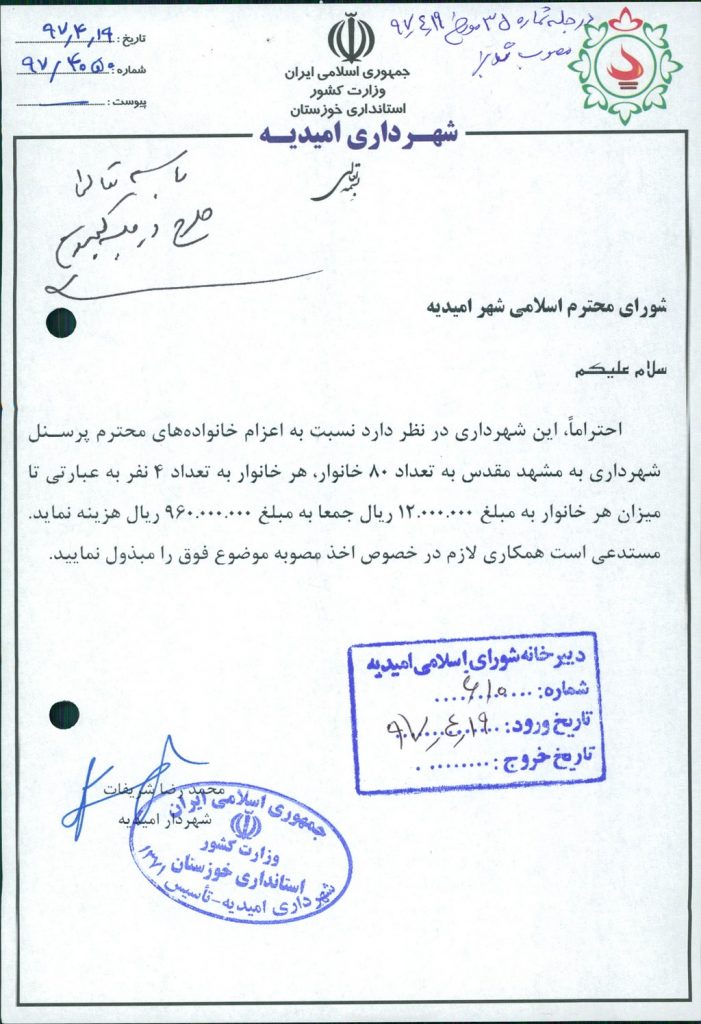 در جلسه شماره ۳۵ مورخ ۹۷٫۴٫۱۹
مصوب شد
جمهوری اسلامی ایران
وزارت کشور
استانداری خوزستان
شهرداری امیدیه
تاریخ : ۹۷٫۴٫۱۹
شماره : ۹۷/۴۰۵۰
پیوست :
بسمه تعالی
باسمه تعالی
طرح در جلسه
شورای محترم اسلامی شهر امیدیه
سلام علیکم
احتراماً، این شهرداری در نظر دارد نسبت به اعزام خانواده‌های محترم پرسنل
شهرداری به مشهد مقدس به تعداد ۸۰ خانوار، هر خانوار به تعداد ۴ نفر به عبارتی تا
میزان هر خانوار به مبلغ ۱۲.۰۰۰.۰۰۰ ریال جمعا به مبلغ ۹۶۰.۰۰۰.۰۰۰ ریال هزینه نماید.
مستدعی است همکاری لازم در خصوص اخذ مصوبه موضوع فوق را مبذول نمایید.
دبیرخانه شورای اسلامی امیدیه
شماره: ۶۱۰
تاریخ ورود: ۹۷٫۴٫۱۹
تاریخ خروج:
محمد رضا شریفات
شهردار امیدیه
جمهوری اسلامی ایران
وزارت کشور
استانداری خوزستان
شهرداری امیدیه-تأسیس ۱۳۷۱